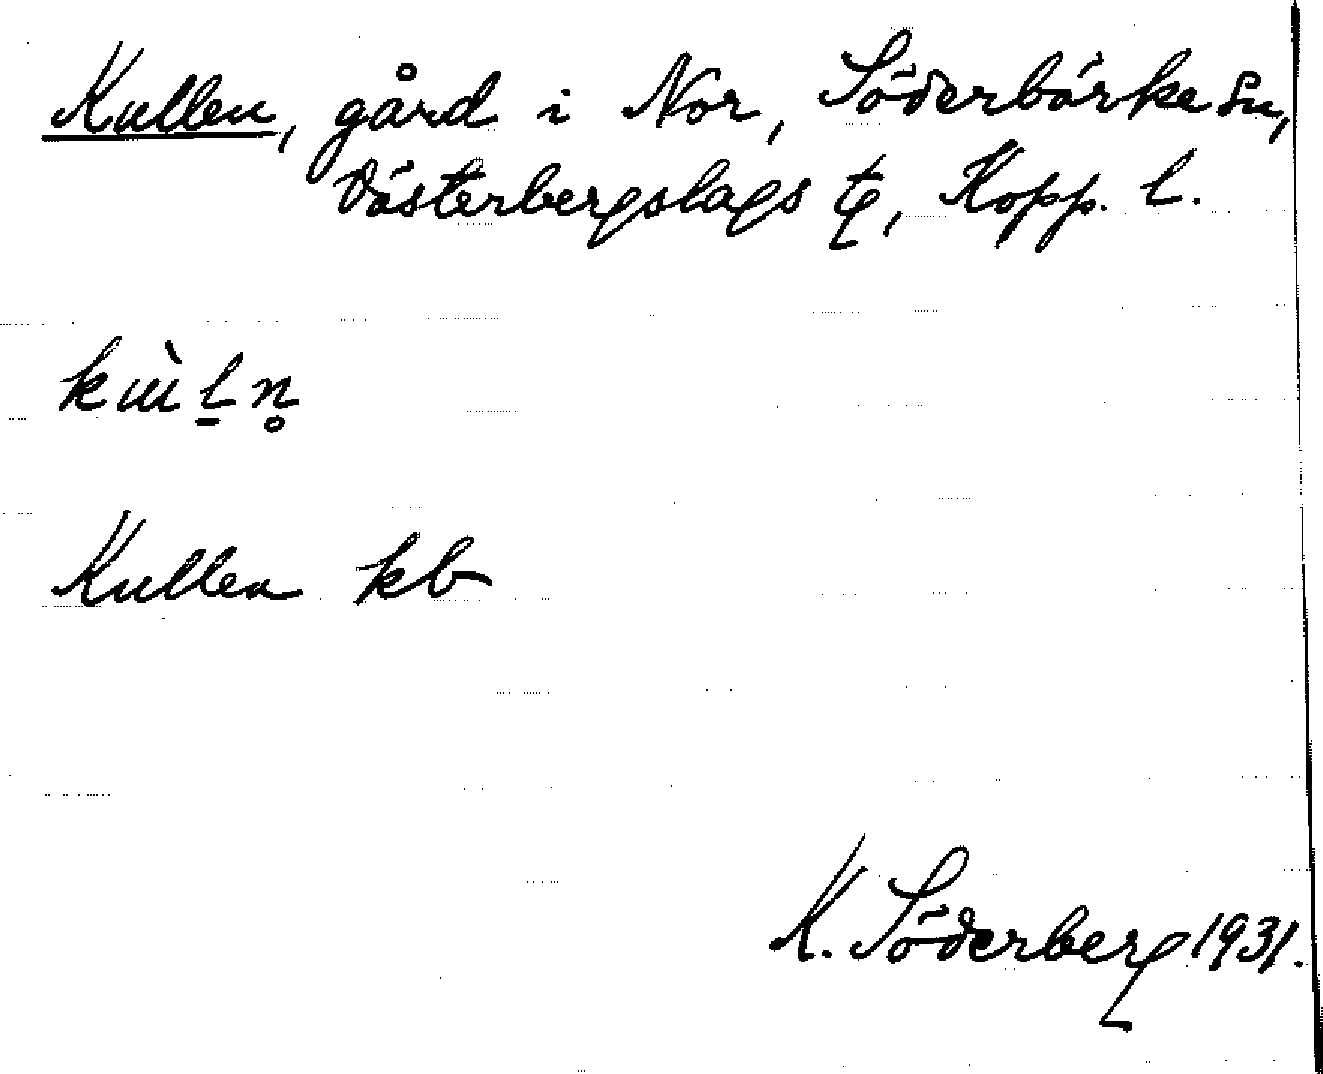 Kullen, gård i Nor, Söderbärke sn,
Västerbergslags tg, Kopp. l.
kɯ̀l̠n̥
Kullen kb
K. Söderberg 1931.